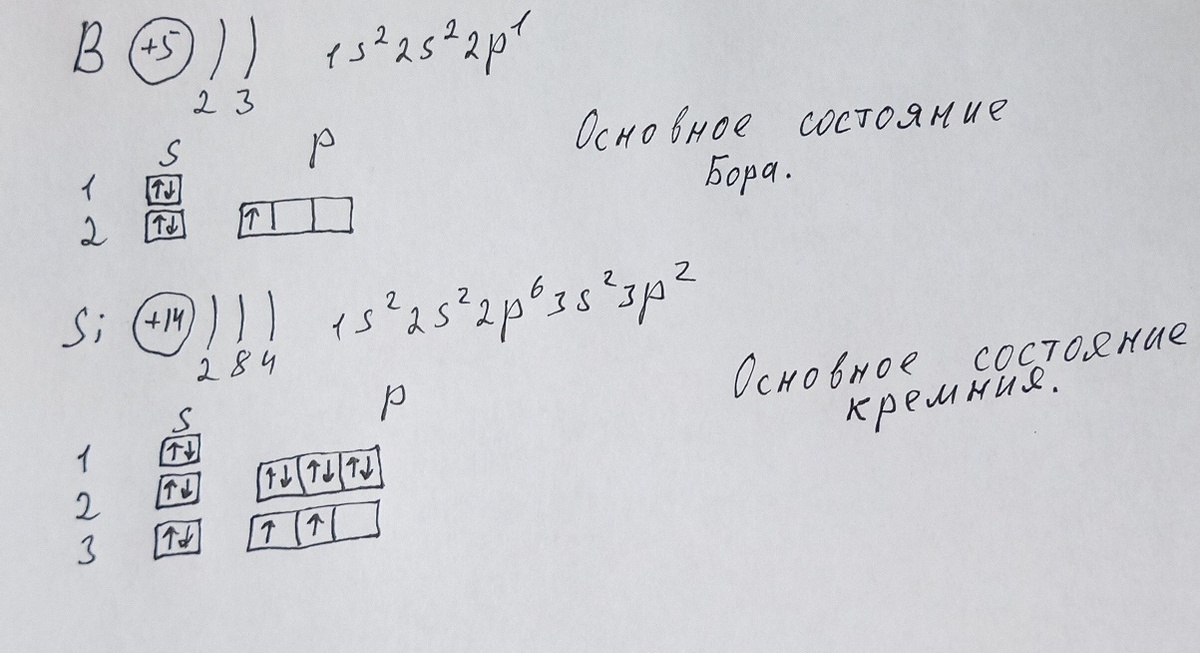 B +5 ) ) 1s²2s²2p¹
2 3
Основное состояние
Бора.
s p
1 ↑↓
2 ↑↓ ↑
Si +14 ) ) ) 1s²2s²2p⁶3s²3p²
2 8 4
Основное состояние
кремния.
s p
1 ↑↓
2 ↑↓ ↑↓ ↑↓ ↑↓
3 ↑↓ ↑ ↑